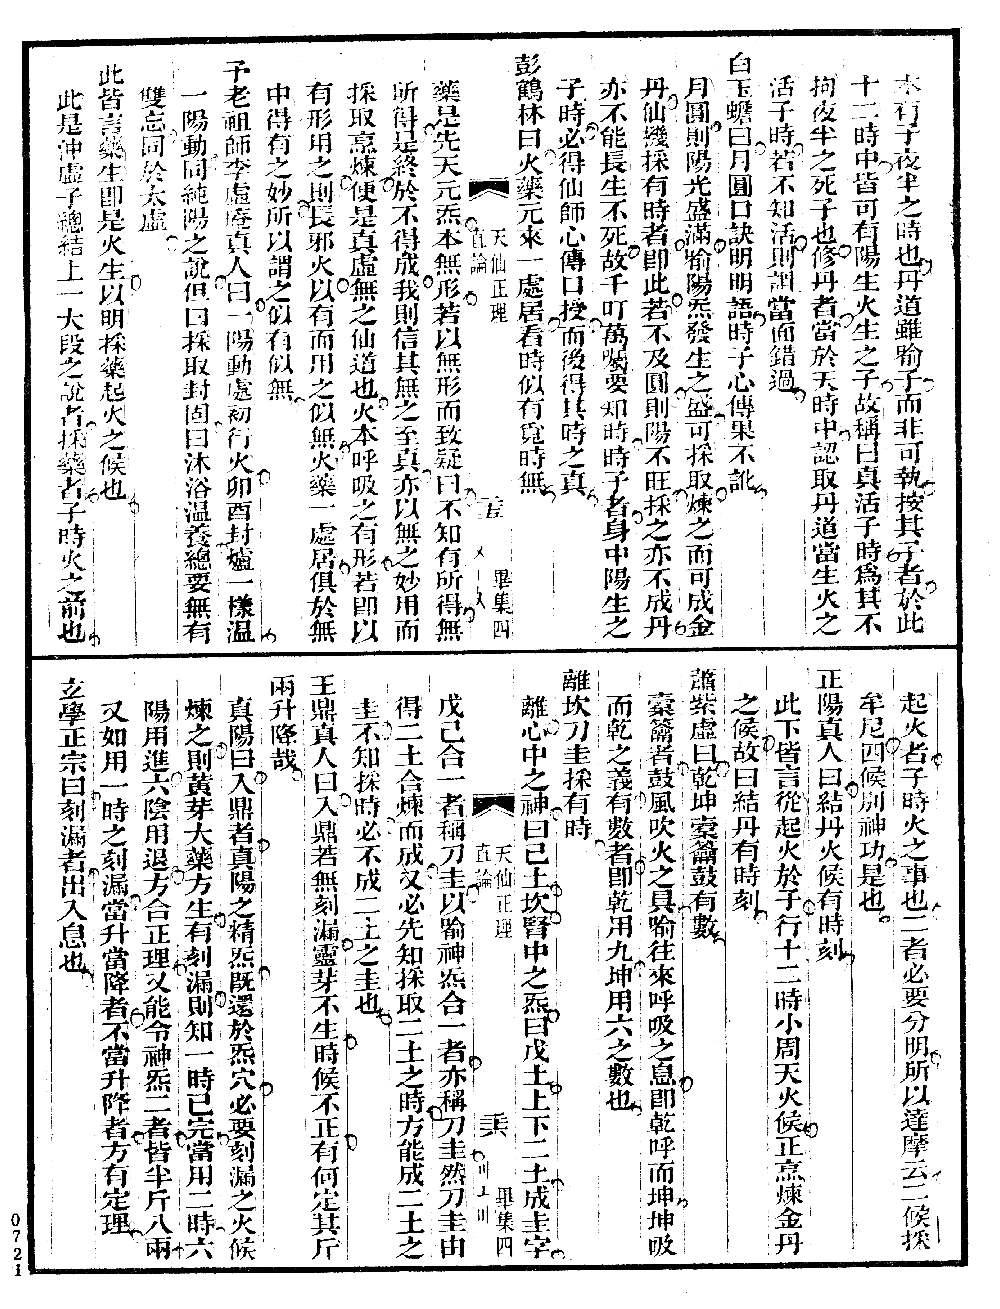 本有子夜半之時也丹道雖喻子而非可執按其子者於此
十二時中皆可有陽生火生之子故稱曰真活子時爲其不
拘夜半之死子也修丹者當於天時中認取丹道當生火之
活子時若不知活則謂當面錯過
白玉蟾曰月圓口訣明明語時子心傳果不訛
月圓則陽光盛滿喻陽炁發生之盛可採取煉之而可成金
丹仙機採有時者卽此若不及圓則陽不旺採之亦不成丹
亦不能長生不死故千叮萬囑要知時時子者身中陽生之
子時必得仙師心傳口授而後得其時之真
彭鶴林曰火藥元來一處居看時似有覓時無
天仙正理
直論
畢集四
藥是先天元炁本無形若以無形而致疑曰不知有所得無
所得是終於不得成我則信其無之至真亦以無之妙用而
採取烹煉便是真虛無之仙道也火本呼吸之有形若卽以
有形用之則長邪火以有而用之似無火藥一處居俱於無
中得有之妙所以謂之似有似無
予老祖師李虛庵真人曰一陽動處初行火卯酉封爐一樣温
一陽動同純陽之說但曰採取封固曰沐浴温養總要無有
雙忘同於太虛
此皆言藥生卽是火生以明採藥起火之候也
此是沖虛子總結上一大段之說者採藥者子時火之前也
起火者子時火之事也二者必要分明所以達摩云二候採
牟尼四候別神功是也
正陽真人曰結丹火候有時刻
此下皆言從起火於子行十二時小周天火候正烹煉金丹
之候故曰結丹有時刻
蕭紫虛曰乾坤橐籥鼓有數
橐籥者鼓風吹火之具喻往來呼吸之息卽乾呼而坤坤吸
而乾之義有數者卽乾用九坤用六之數也
離坎刀圭採有時
離心中之神曰己土坎腎中之炁曰戊土上下二土成圭字
天仙正理
直論
畢集四
戊己合一者稱刀圭以喻神炁合一者亦稱刀圭然刀圭由
得二土合煉而成又必先知採取二土之時方能成二土之
圭不知採時必不成二土之圭也
王鼎真人曰入鼎若無刻漏靈芽不生時候不正有何定其斤
兩升降哉
真陽曰入鼎者真陽之精炁旣還於炁穴必要刻漏之火候
煉之則黃芽大藥方生有刻漏則知一時已完當用二時六
陽用進六陰用退方合正理又能令神炁二者皆半斤八兩
又如用一時之刻漏當升當降者不當升降者方有定理
玄學正宗曰刻漏者出入息也
0721